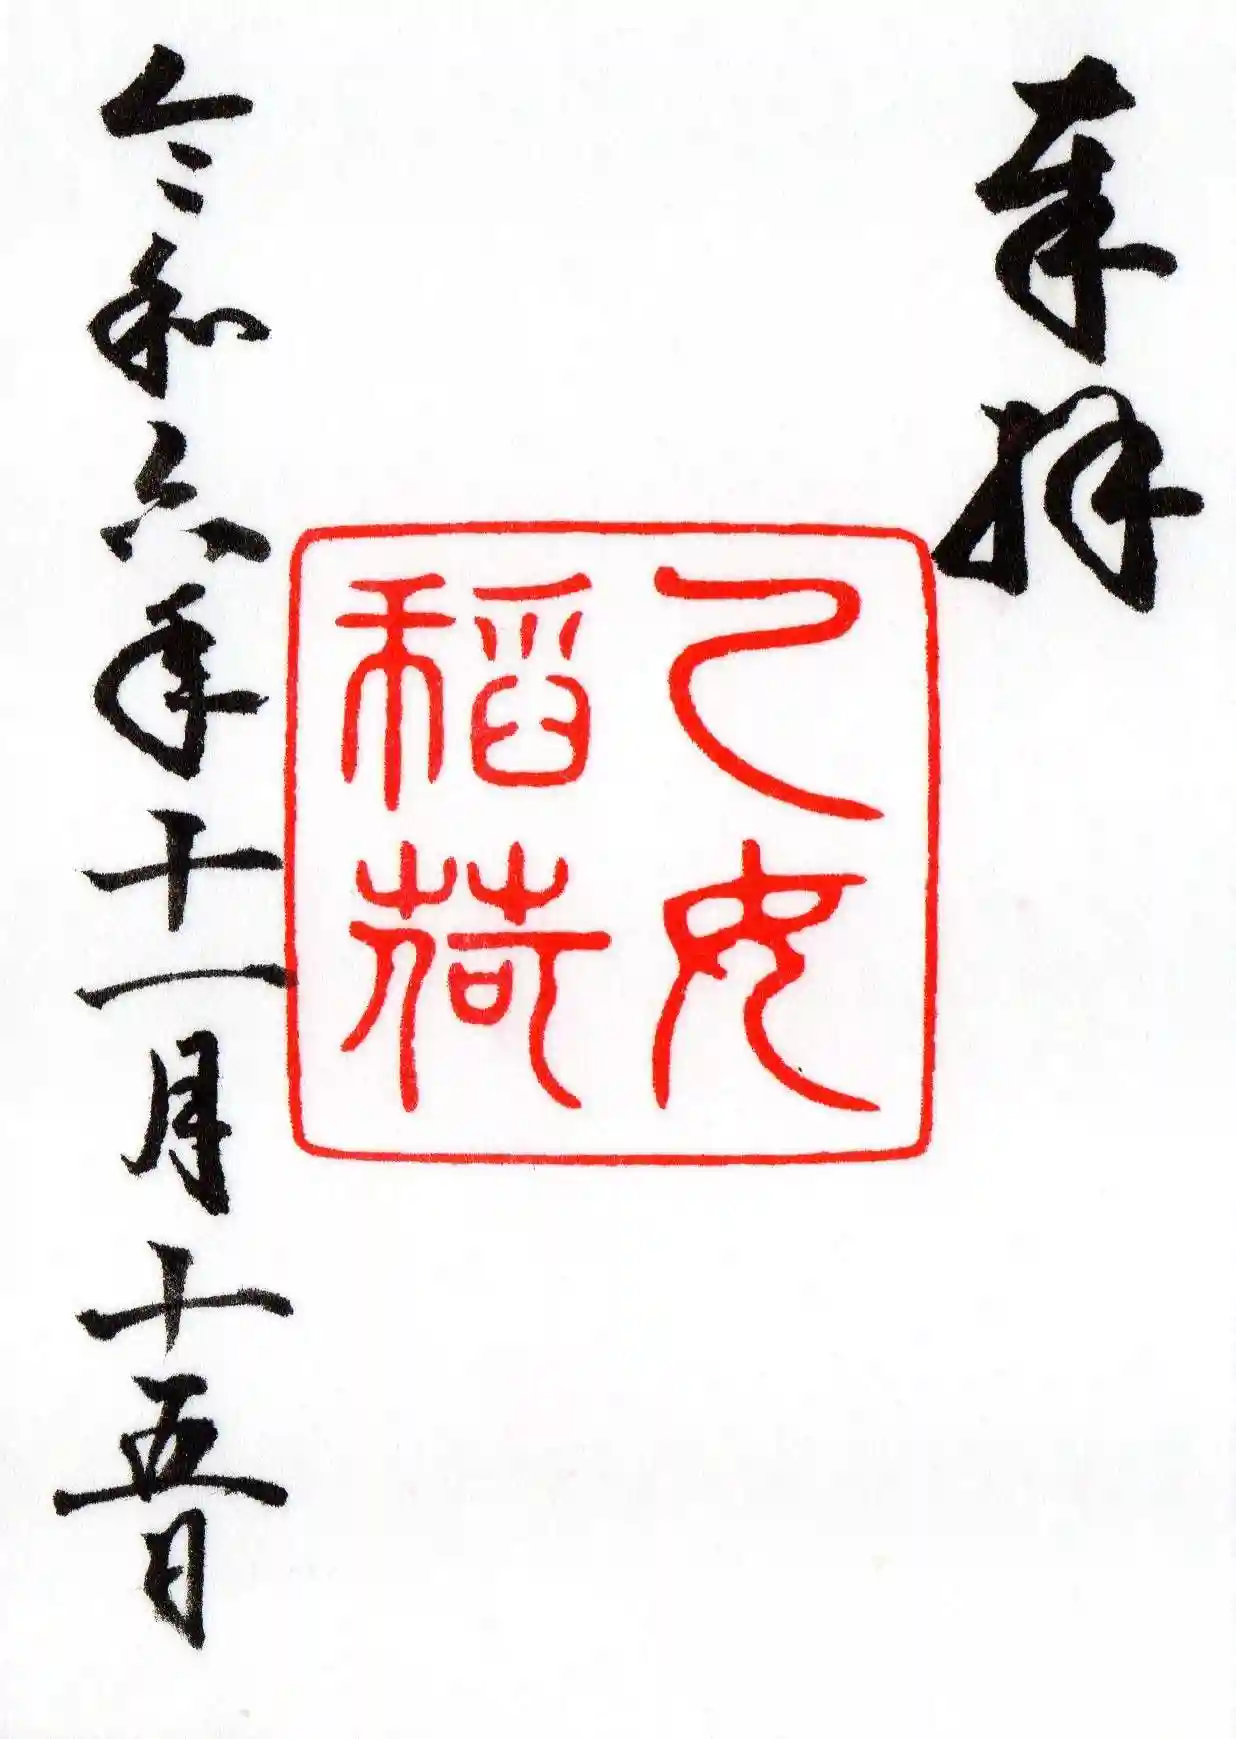 奉拝
乙女
稲荷
令和六年十一月十五日